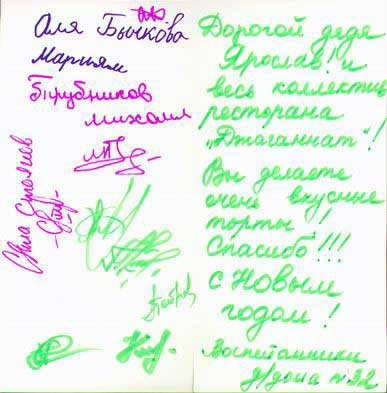 Аля Бычкова
Марьям
Трубников
михаил
Дорогой дедя
Ярослав! и
весь коллектив
ресторана
„Джаганнат"!
Вы делаете
очень вкусные
торты!
Спасибо!!!
с Новым
годом!
Воспитанники
д/дома n32